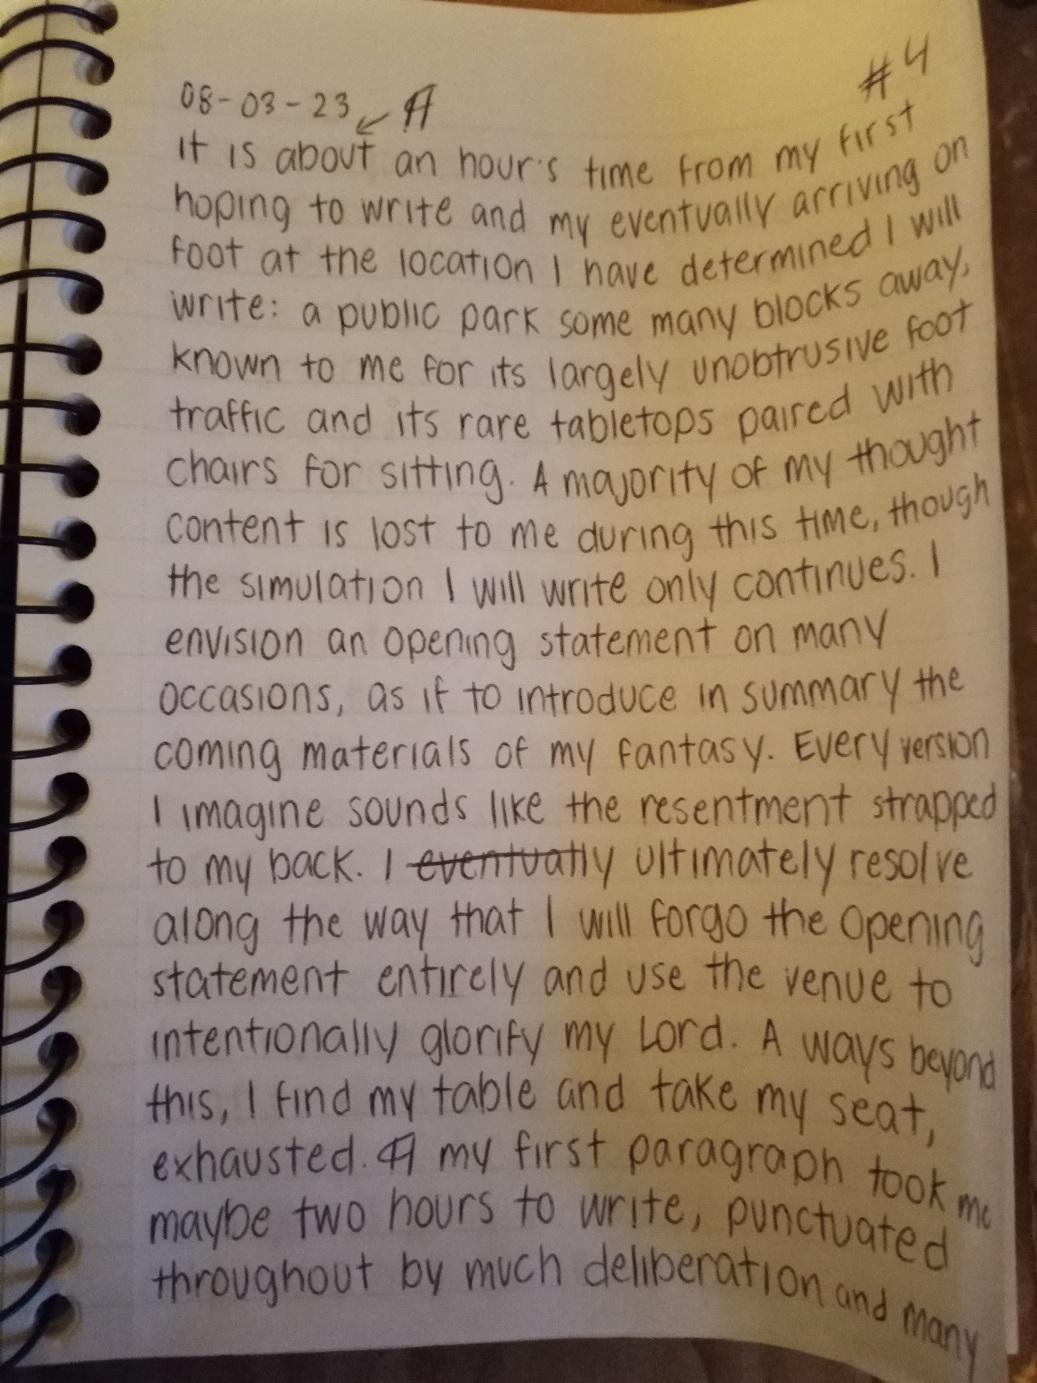 #4
08-03-23 ↙ ¶
It is about an hour's time from my first
hoping to write and my eventually arriving on
foot at the location I have determined I will
write: a public park some many blocks away,
known to me for its largely unobtrusive foot
traffic and its rare tabletops paired with
chairs for sitting. A majority of my thought
content is lost to me during this time, though
the simulation I will write only continues. I
envision an opening statement on many
occasions, as if to introduce in summary the
coming materials of my fantasy. Every version
I imagine sounds like the resentment strapped
to my back. I eventually ultimately resolve
along the way that I will forgo the opening
statement entirely and use the venue to
intentionally glorify my Lord. A ways beyond
this, I find my table and take my seat,
exhausted. ¶ my first paragraph took me
maybe two hours to write, punctuated
throughout by much deliberation and many